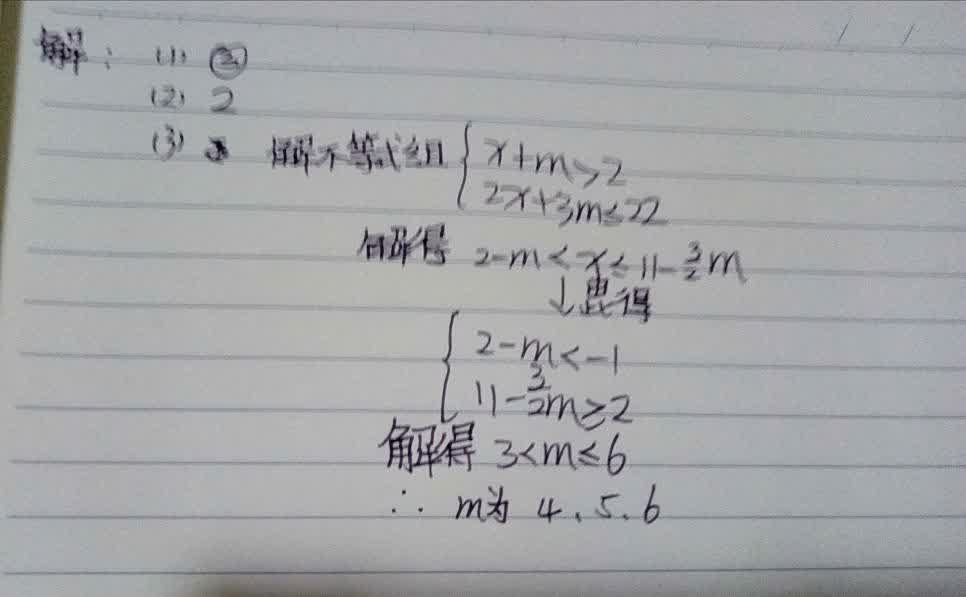 解： (1) ③
(2) 2
(3) 解不等式组 { x+m>2
2x+3m≤22
解得 2-m<x≤11-3/2m
↓ 得
{ 2-m<-1
11-3/2m≥2
解得 3<m≤6
∴ m为 4、5、6